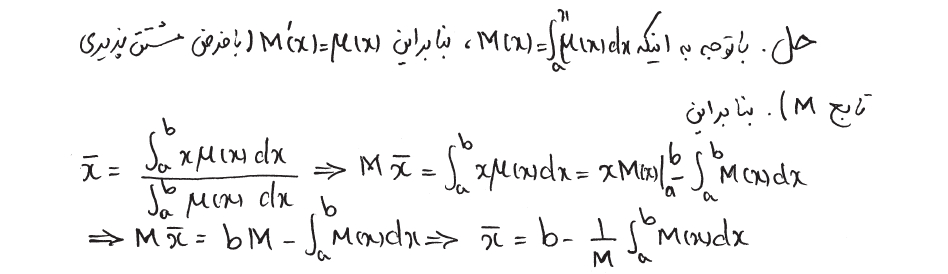 حل. با توجه به اینکه M(x)=∫_a^x μ(x)dx ، بنابراین M'(x)=μ(x) (با فرض مشتق پذیری
تابع M). بنابراین
x̄ = ∫_a^b xμ(x)dx / ∫_a^b μ(x)dx ⇒ M x̄ = ∫_a^b xμ(x)dx = xM(x)|_a^b - ∫_a^b M(x)dx
⇒ M x̄ = bM - ∫_a^b M(x)dx ⇒ x̄ = b - 1/M ∫_a^b M(x)dx